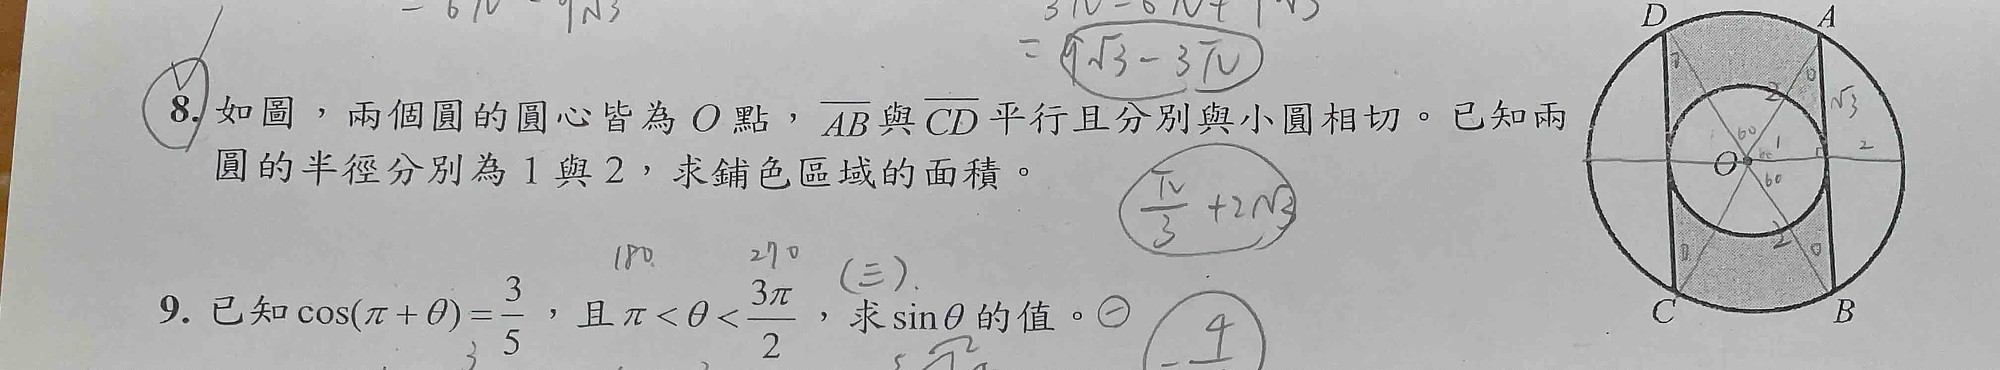 = 6π - 9√3
3π - 6π + 9√3
= 9√3 - 3π
8. 如圖，兩個圓的圓心皆為 O 點，AB 與 CD 平行且分別與小圓相切。已知兩
圓的半徑分別為 1 與 2，求鋪色區域的面積。
π/3 + 2√3
D A
2
√3
60 1 2
O
60
2
C B
180 270 (三).
9. 已知 cos(π + θ) = 3/5，且 π < θ < 3π/2，求 sin θ 的值。⊖
- 4